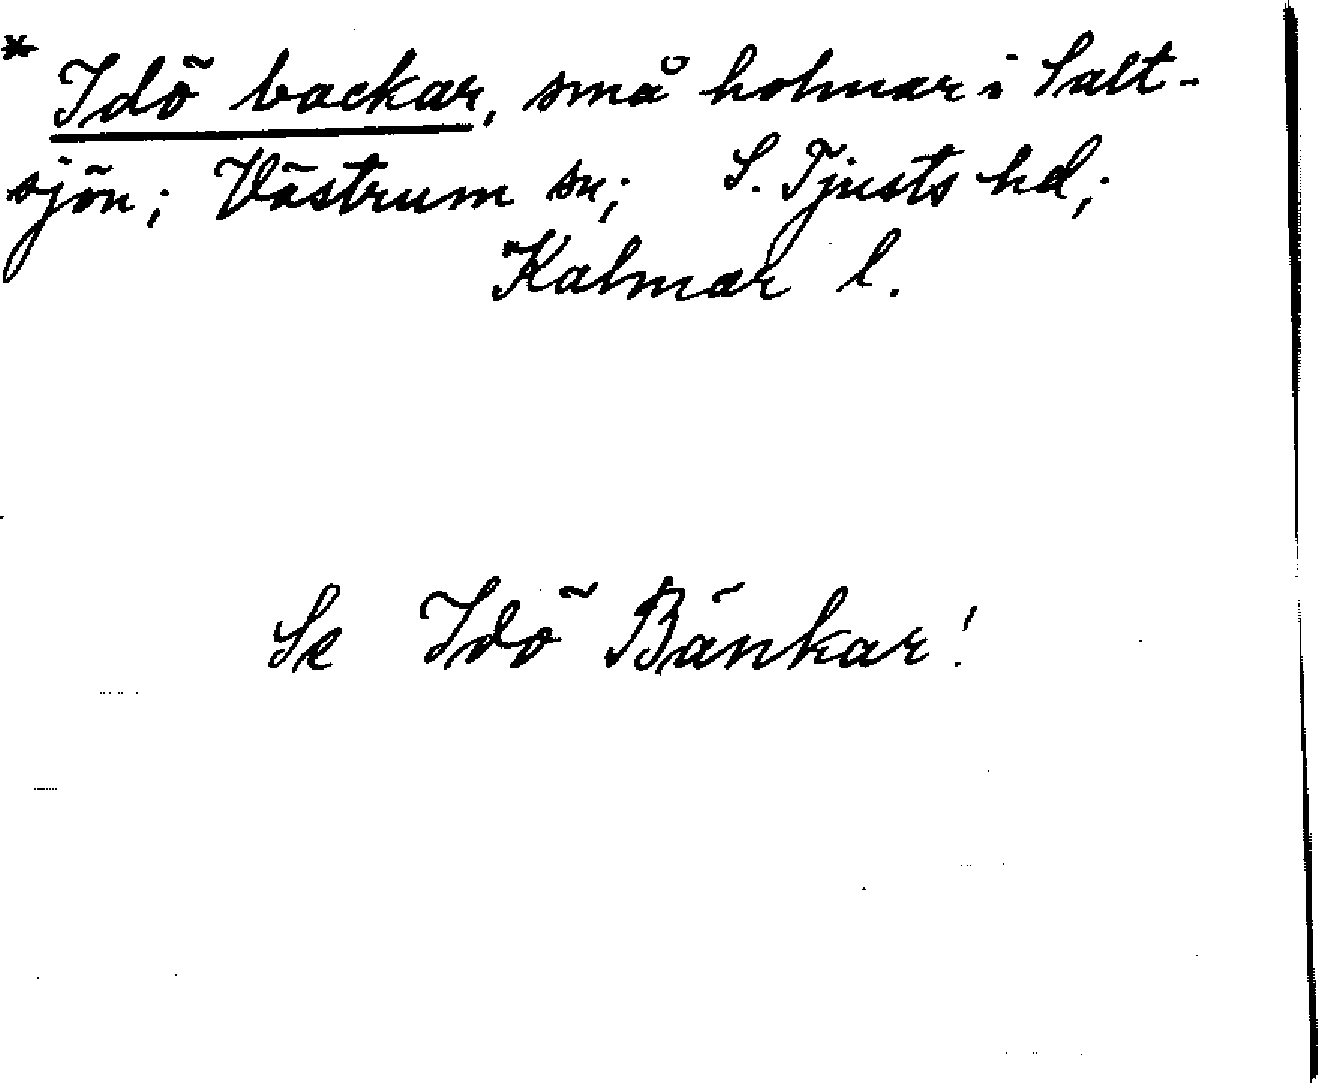 * Idö backar, små holmar i Salt-
sjön; Västrum sn; S. Tjusts hd;
Kalmar l.
Se Idö Bänkar!